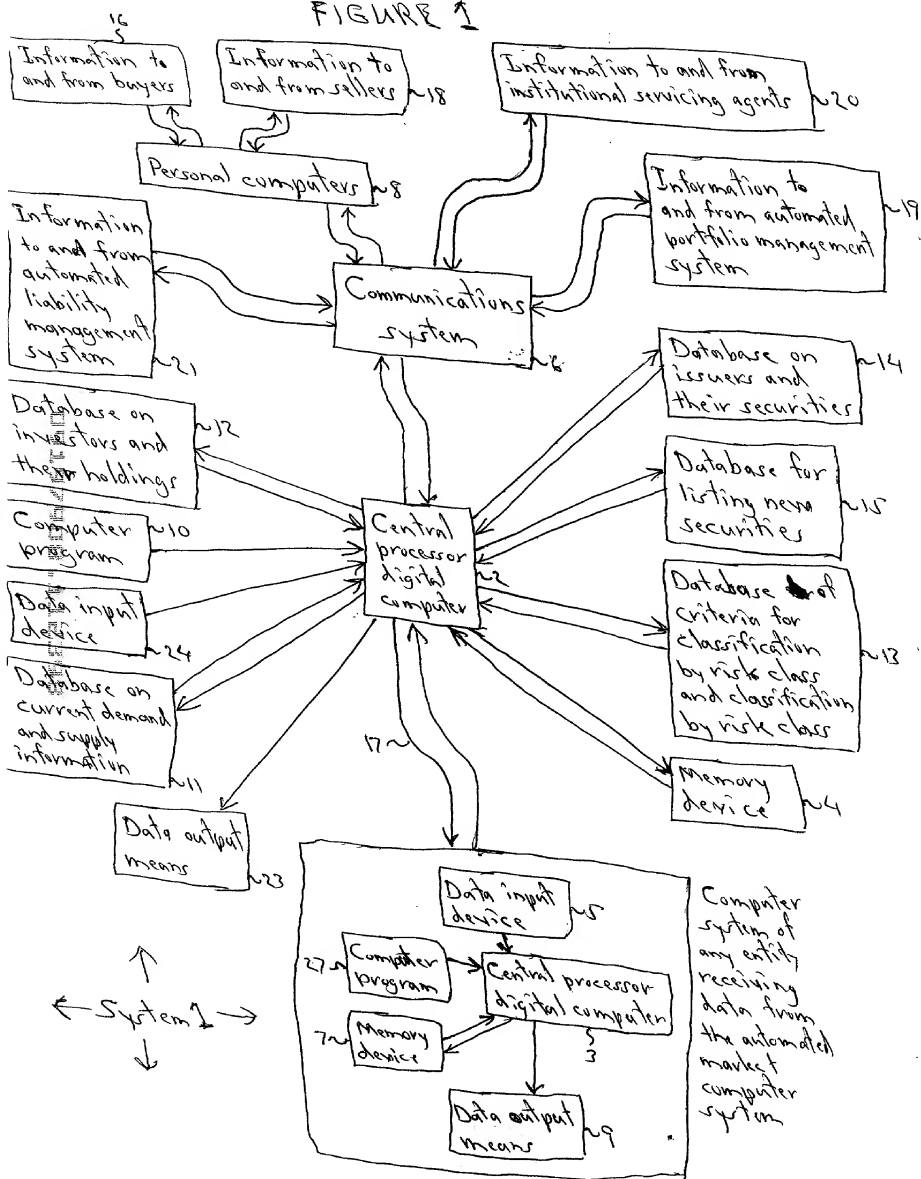 FIGURE 1
16
Information to
and from buyers
Information to
and from sellers
18
Information to and from
institutional servicing agents
20
Personal computers
8
Information to
and from automated
portfolio management
system
19
Information
to and from
automated
liability
management
system
21
Communications
system
6
Database on
issuers and
their securities
14
Database on
investors and
their holdings
12
Database for
listing new
securities
15
Computer
program
10
Central
processor
digital
computer
2
Data input
device
24
Database of
criteria for
classification
by risk class
and classification
by risk class
13
Database on
current demand
and supply
information
11
17
Memory
device
4
Data output
means
23
Data input
device
5
Computer
program
27
Central processor
digital computer
3
Memory
device
7
Data output
means
9
Computer
system of
any entity
receiving
data from
the automated
market
computer
system
System 1